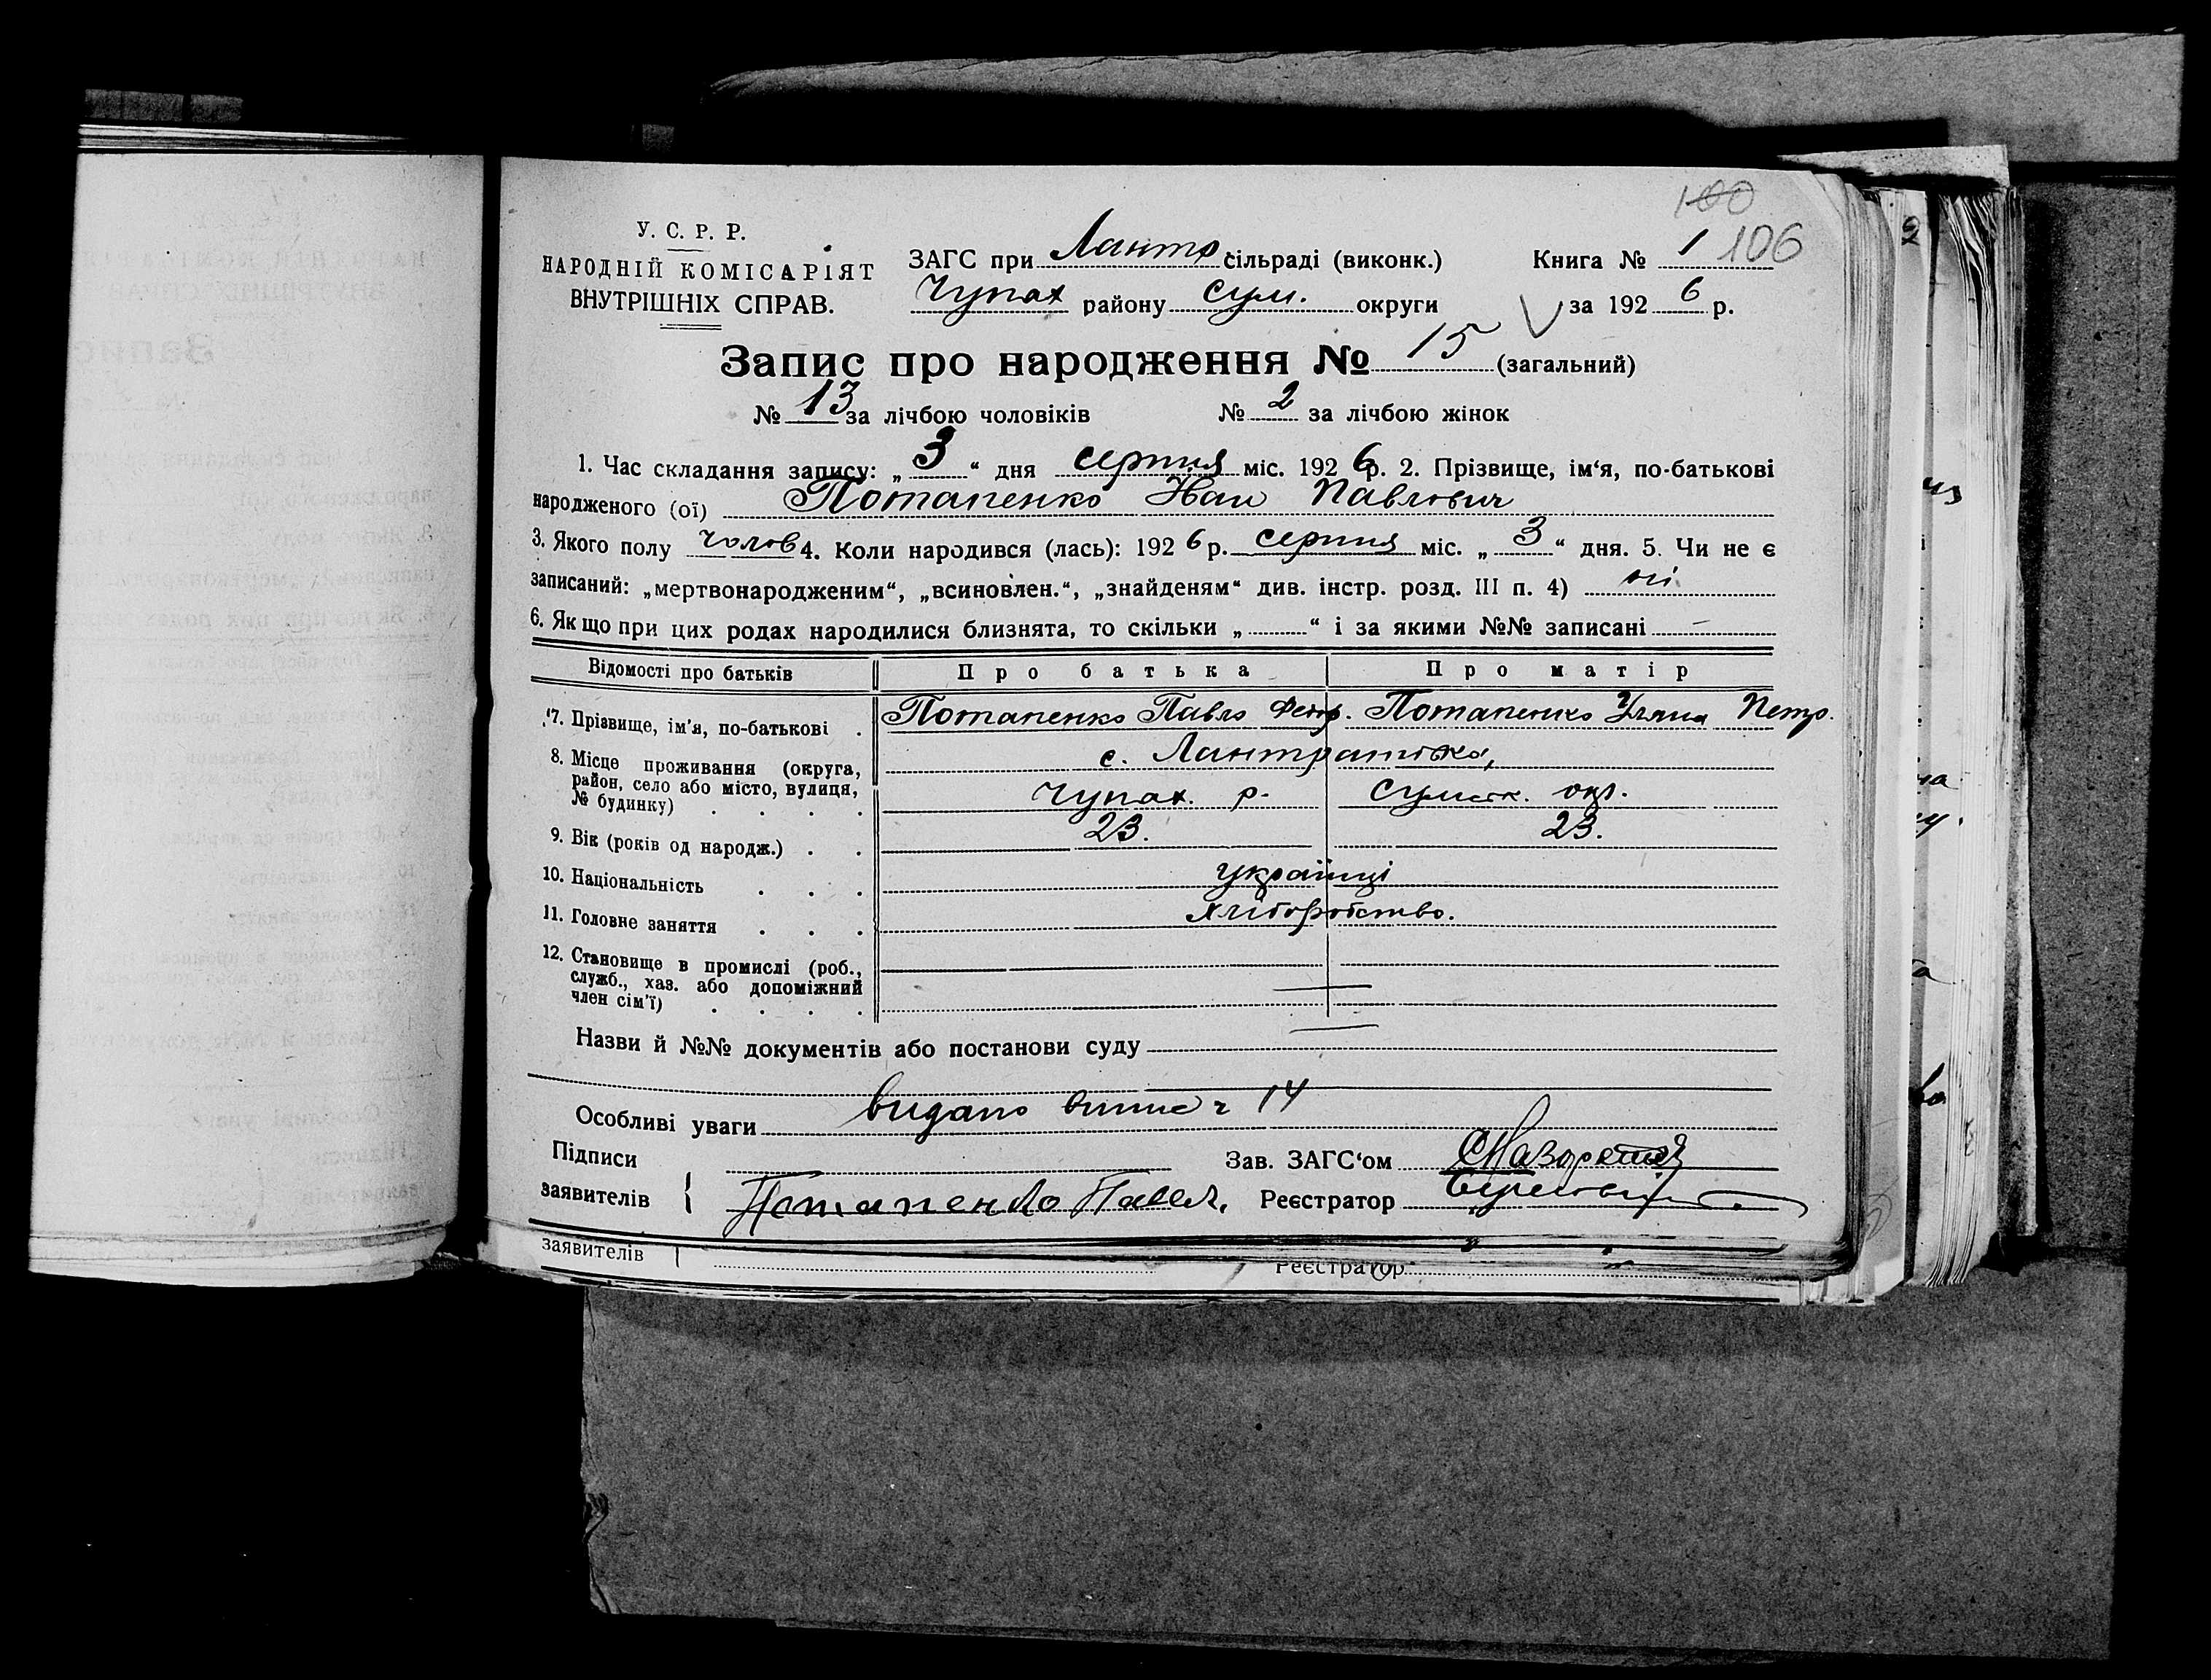 100
106
У. С. Р. Р.
НАРОДНІЙ КОМІСАРІЯТ
ВНУТРІШНІХ СПРАВ.
ЗАГС при Лантр сільраді (виконк.) Книга № 1
Чупах району Сум. округи за 192 6 р.
Запис про народження № 15 (загальний)
№ 13 за лічбою чоловіків № 2 за лічбою жінок
1. Час складання запису: „ 3 “ дня серпня міс. 192 6 р. 2. Прізвище, ім‘я, по-батькові
народженого (ої) Потапенко Іван Павлович
3. Якого полу чолов 4. Коли народився (лась): 192 6 р. серпня міс. „ 3 “ дня. 5. Чи не є
записаний: „мертвонародженим“, „всиновлен.“, „знайденям“ див. інстр. розд. III п. 4) ні
6. Якщо при цих родах народилися близнята, то скільки „ “ і за якими №№ записані —
Відомості про батьків Про батька Про матір
7. Прізвище, ім‘я, по-батькові . Потапенко Павло Федор. Потапенко Уляна Петр.
8. Місце проживання (округа, район, село або місто, вулиця, № будинку) . . . . с. Лантратівка,
Чупах. р. Сумськ. окр.
9. Вік (років од народж.) . . 23. 23.
10. Національність . . . українці
11. Головне заняття . . . хліборобство.
12. Становище в промислі (роб.,
служб., хаз. або допоміжний
член сім‘ї) . . . . —
Назви й №№ документів або постанови суду —
Особливі уваги видано 14
Підписи Зав. ЗАГС‘ом
заявителів { Потапенко Павел. Реєстратор
заявителів Реєстратор